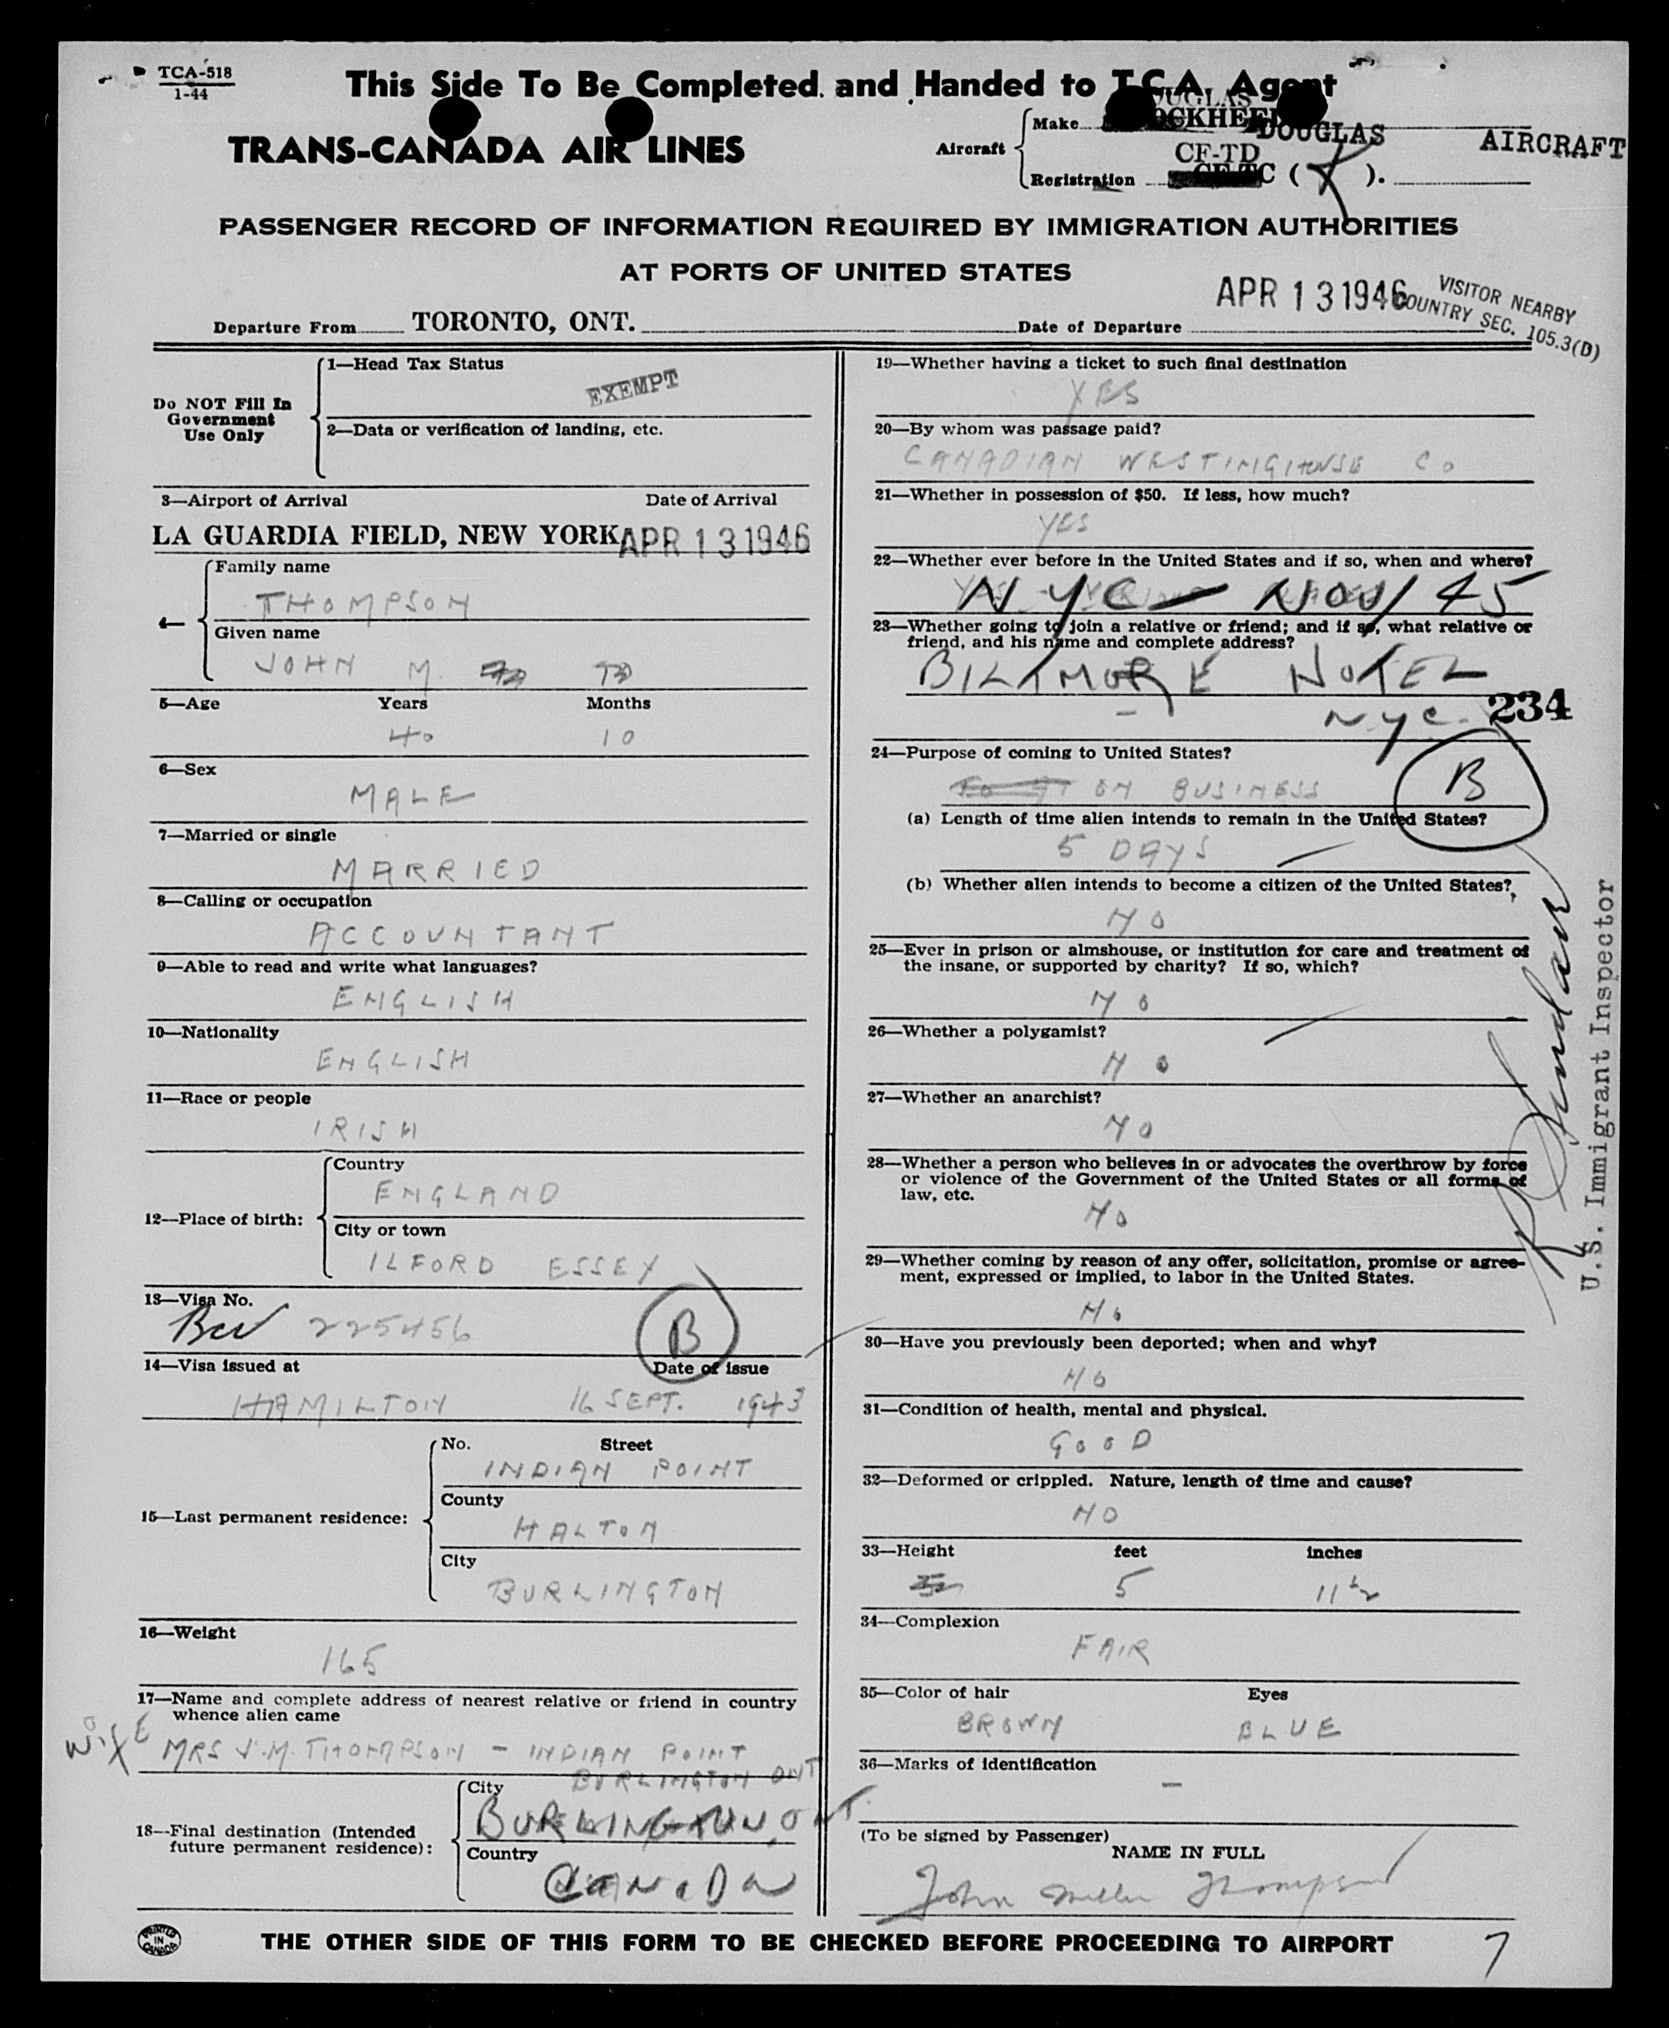 TCA-518
1-44
This Side To Be Completed and Handed to T.C.A. Agent
TRANS-CANADA AIR LINES
Aircraft
Make
DOUGLAS
AIRCRAFT
CF-TD
Registration C ( ).
PASSENGER RECORD OF INFORMATION REQUIRED BY IMMIGRATION AUTHORITIES
AT PORTS OF UNITED STATES
Departure From TORONTO, ONT. Date of Departure APR 13 1946
VISITOR NEARBY
COUNTRY SEC. 105.3(D)
Do NOT Fill In
Government
Use Only
1—Head Tax Status
EXEMPT
2—Data or verification of landing, etc.
3—Airport of Arrival Date of Arrival
LA GUARDIA FIELD, NEW YORK APR 13 1946
4—
Family name
THOMPSON
Given name
JOHN M.
5—Age Years Months
40 10
6—Sex
MALE
7—Married or single
MARRIED
8—Calling or occupation
ACCOUNTANT
9—Able to read and write what languages?
ENGLISH
10—Nationality
ENGLISH
11—Race or people
IRISH
12—Place of birth:
Country
ENGLAND
City or town
ILFORD ESSEX
13—Visa No.
225456 B
14—Visa issued at Date of issue
HAMILTON 16 SEPT. 1943
15—Last permanent residence:
No. Street
INDIAN POINT
County
HALTON
City
BURLINGTON
16—Weight
165
17—Name and complete address of nearest relative or friend in country
whence alien came
WIFE MRS J.M. THOMPSON – INDIAN POINT
BURLINGTON ONT
18—Final destination (Intended
future permanent residence):
City
BURLINGTON, ONT.
Country
CANADA
19—Whether having a ticket to such final destination
YES
20—By whom was passage paid?
CANADIAN WESTINGHOUSE CO
21—Whether in possession of $50. If less, how much?
YES
22—Whether ever before in the United States and if so, when and where?
NYC — NOV 45
23—Whether going to join a relative or friend; and if so, what relative or
friend, and his name and complete address?
BILTMORE HOTEL
– NYC.
234
24—Purpose of coming to United States?
ON BUSINESS
B
(a) Length of time alien intends to remain in the United States?
5 DAYS
(b) Whether alien intends to become a citizen of the United States?
NO
25—Ever in prison or almshouse, or institution for care and treatment of
the insane, or supported by charity? If so, which?
NO
26—Whether a polygamist?
NO
27—Whether an anarchist?
NO
28—Whether a person who believes in or advocates the overthrow by force
or violence of the Government of the United States or all forms of
law, etc.
NO
29—Whether coming by reason of any offer, solicitation, promise or agree-
ment, expressed or implied, to labor in the United States.
NO
30—Have you previously been deported; when and why?
NO
31—Condition of health, mental and physical.
GOOD
32—Deformed or crippled. Nature, length of time and cause?
NO
33—Height feet inches
5 11½
34—Complexion
FAIR
35—Color of hair Eyes
BROWN BLUE
36—Marks of identification
—
(To be signed by Passenger)
NAME IN FULL
John Miller Thompson
U.S. Immigrant Inspector
PRINTED
IN
CANADA
THE OTHER SIDE OF THIS FORM TO BE CHECKED BEFORE PROCEEDING TO AIRPORT
7